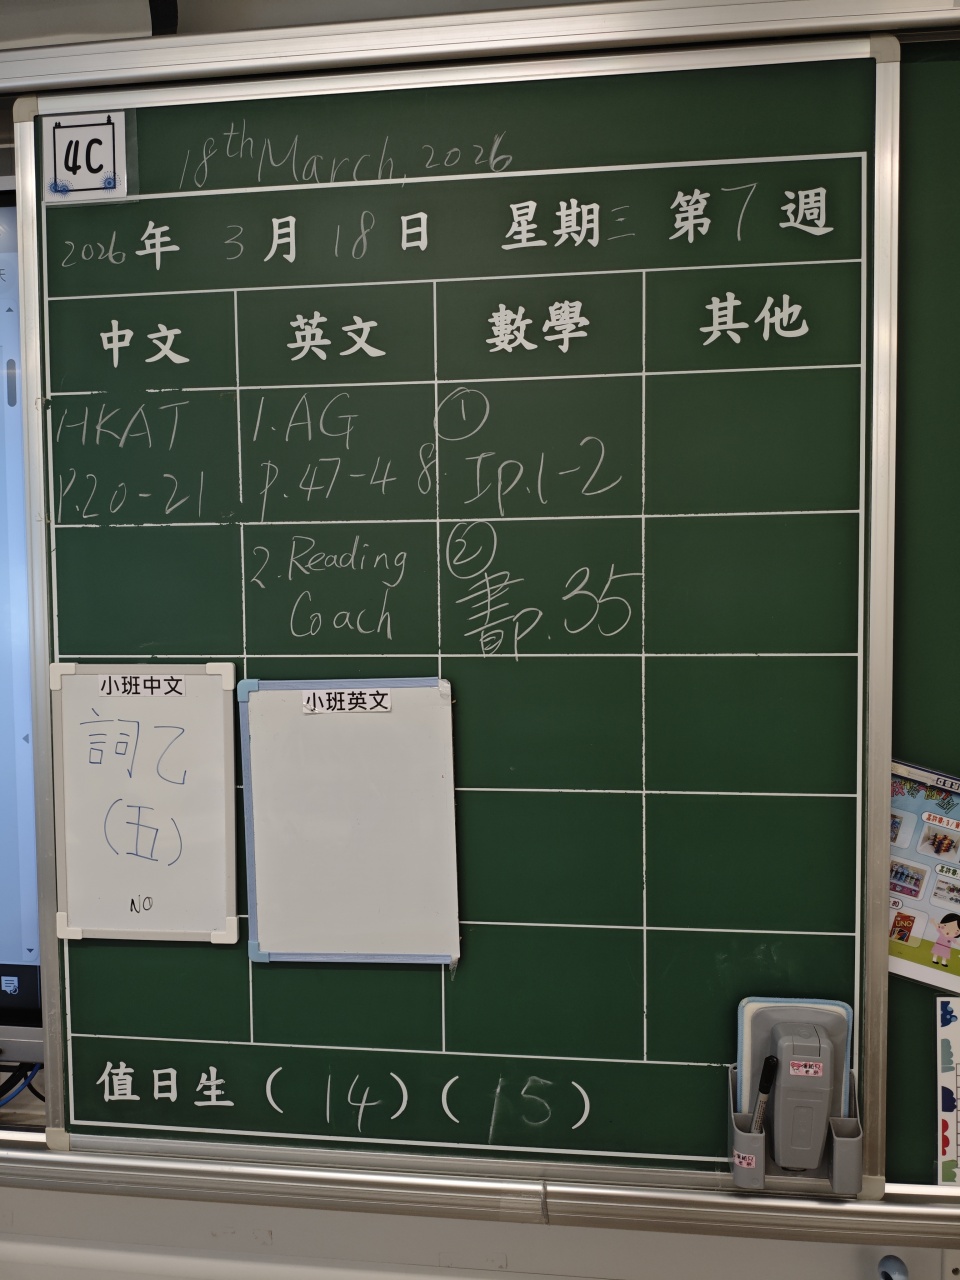 4C
18th March, 2026
2026年 3月 18日 星期三 第7週
中文 英文 數學 其他
HKAT
P.20-21
1.AG
p.47-48
2.Reading
Coach
①
Ip.1-2
②
書p.35
小班中文
詞乙
(五)
NO
小班英文
值日生 ( 14 ) ( 15 )
UNO